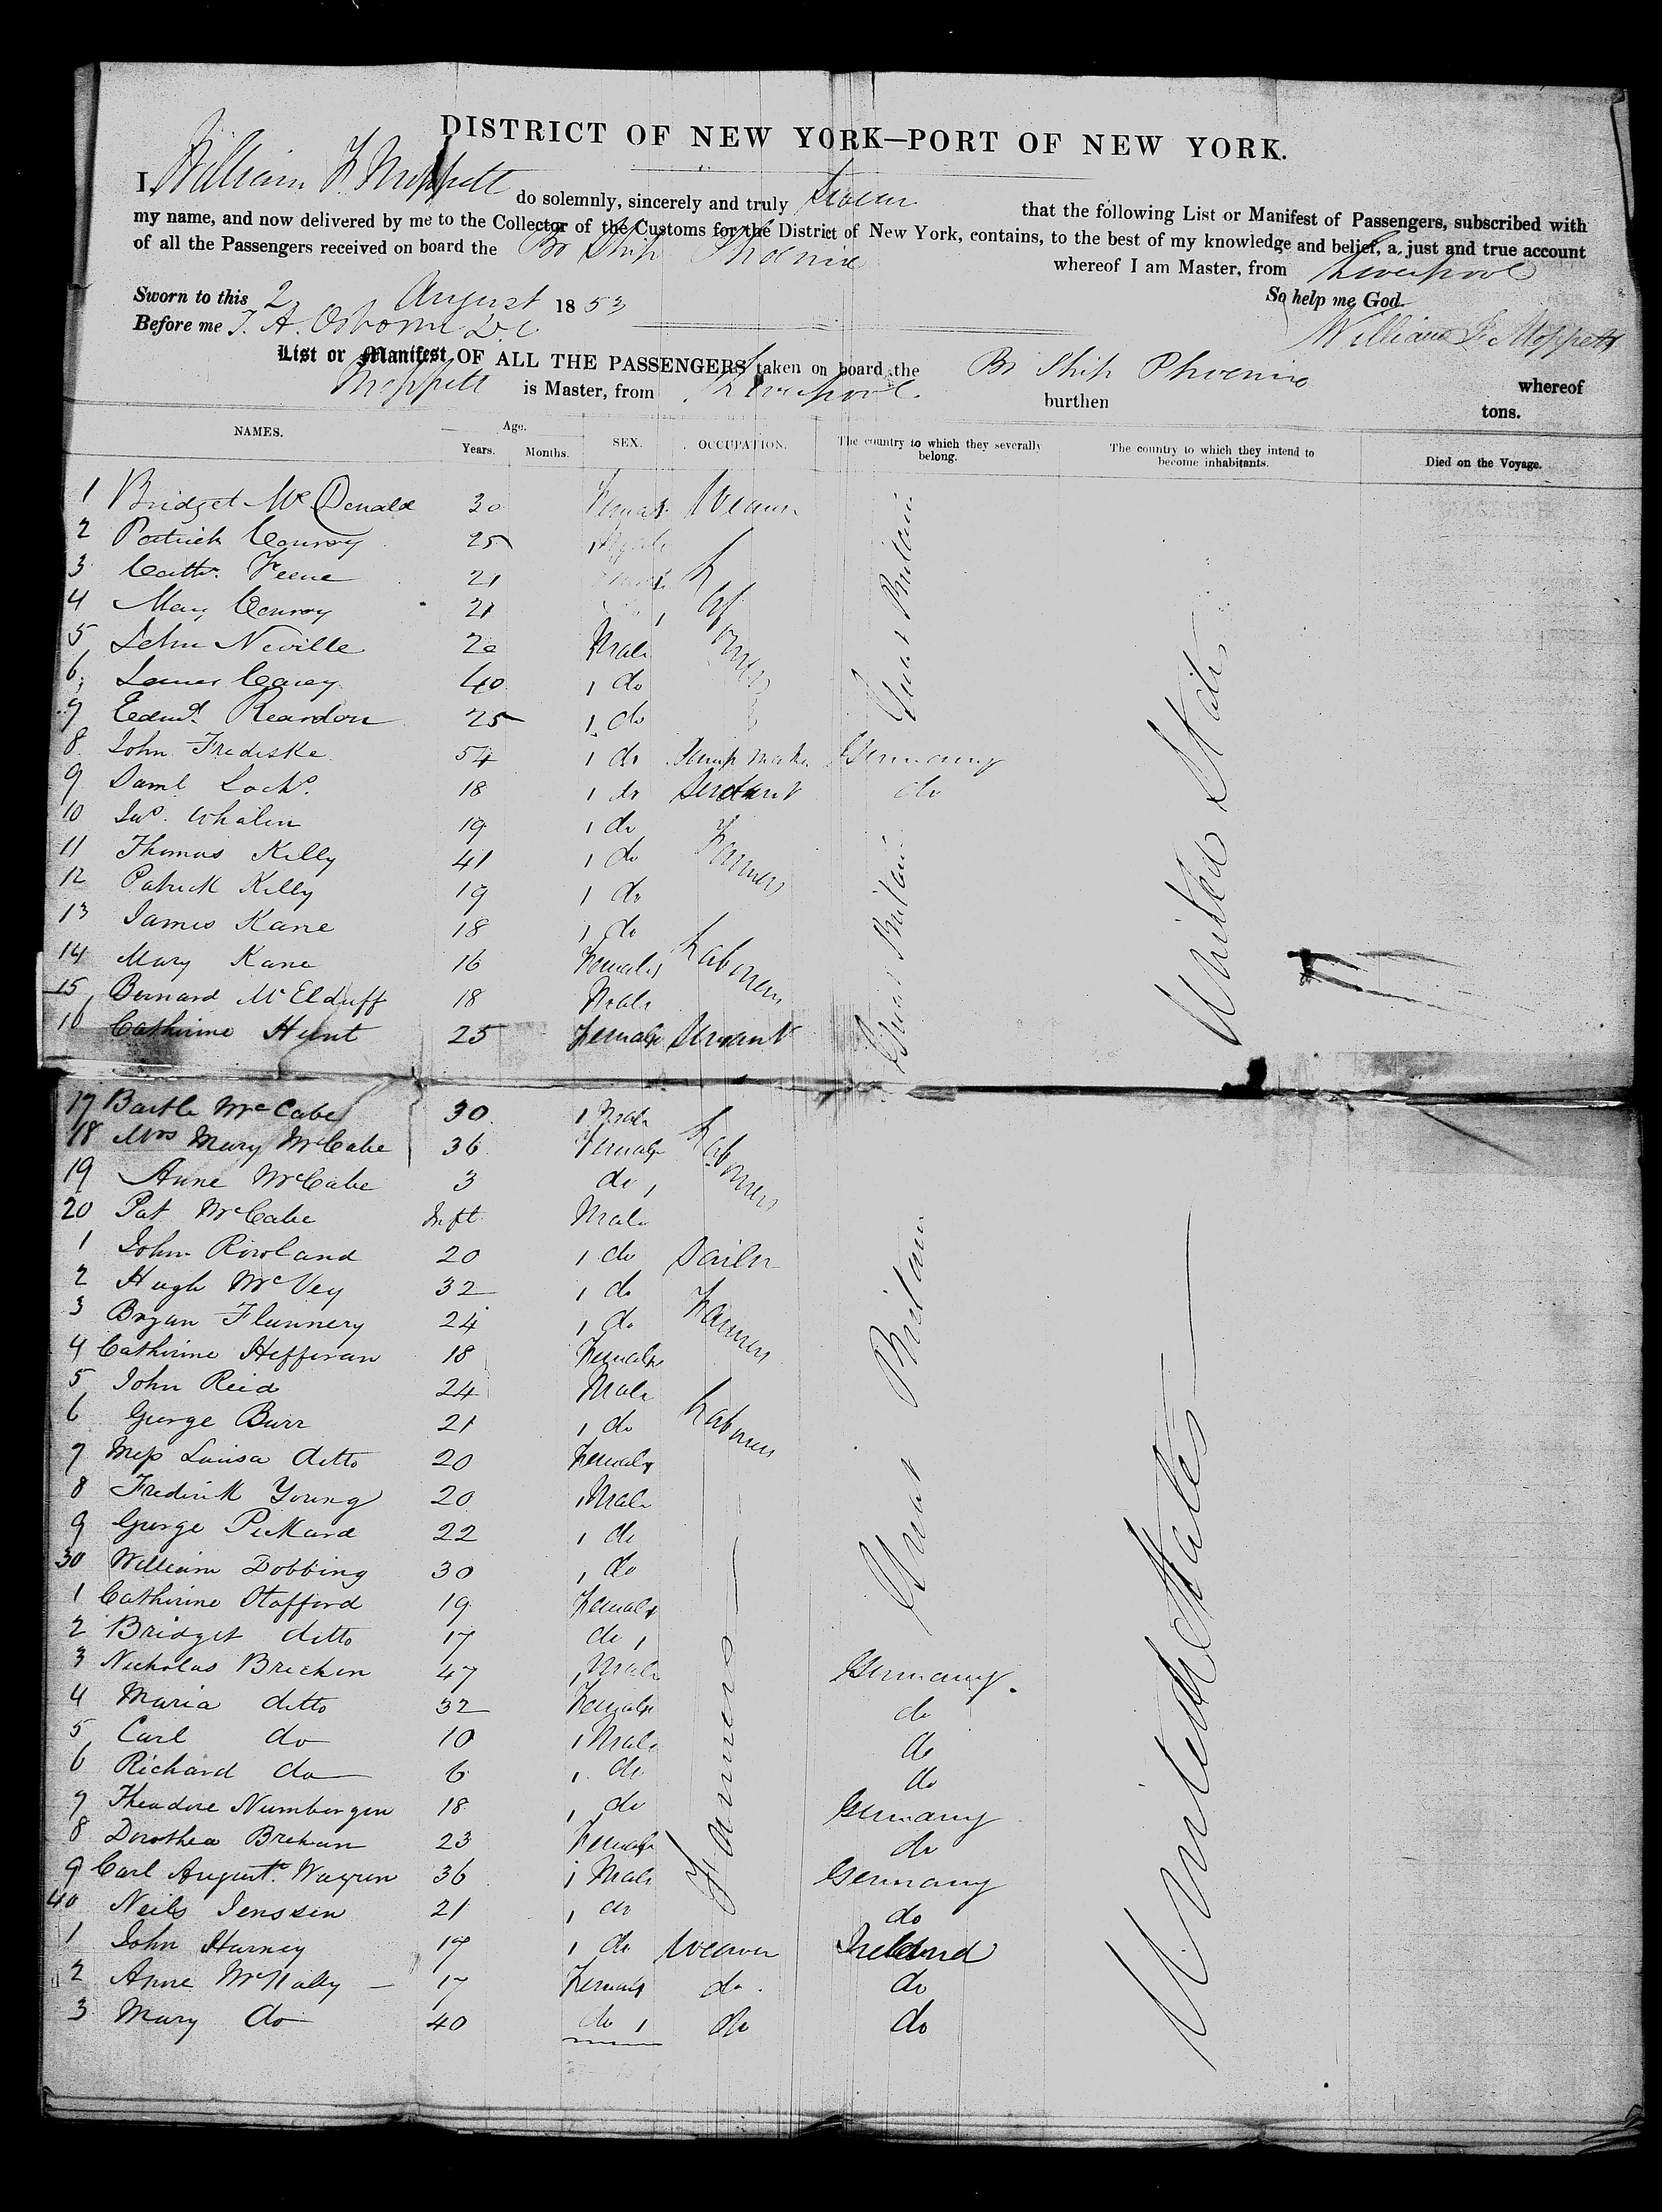 DISTRICT OF NEW YORK—PORT OF NEW YORK.
I, William F. Moppett do solemnly, sincerely and truly Swear that the following List or Manifest of Passengers, subscribed with
my name, and now delivered by me to the Collector of the Customs for the District of New York, contains, to the best of my knowledge and belief, a just and true account
of all the Passengers received on board the Br Ship Phoenix whereof I am Master, from Liverpool
So help me God.
Sworn to this 2 August 1853
Before me T. A. Osborne D.C. William F. Moppett
List or Manifest OF ALL THE PASSENGERS taken on board the Br Ship Phoenix whereof
Moppett is Master, from Liverpool burthen tons.
NAMES. Age. Years. Months. SEX. OCCUPATION. The country to which they severally belong. The country to which they intend to become inhabitants. Died on the Voyage.
1 Bridget McDonald 30 Female Weaver
2 Patrick Conroy 25 Male
3 Cathr. Feene 21
4 Mary Conroy 21
5 John Neville 20 Male
6 James Carey 40 do
7 Edmd. Reardon 25 do
Laborers Great Britain
8 John Frediske 54 do Pump Maker Germany
9 Saml Loch. 18 do Servant do
10 Jno. Whalen 19 do
11 Thomas Kelly 41 do
12 Patrick Kelly 19 do
Farmers
13 James Kane 18 do
14 Mary Kane 16 Female
15 Bernard McElduff 18 Male
Laborers
16 Catherine Hunt 25 Female Servant
Great Britain
United States
17 Bartle McCabe 30 Male
18 Mrs Mary McCabe 36 Female
19 Anne McCabe 3 do
20 Pat McCabe Inft Male
Laborers
1 John Rowland 20 do Sailor
2 Hugh McVey 32 do
3 Bryan Flannery 24 do
4 Catherine Heffernan 18 Female
Farmers
5 John Reid 24 Male
6 George Burr 21 do
7 Miss Louisa ditto 20 Female
Laborers
8 Frederick Young 20 Male
9 George Pickard 22 do
30 William Dobbing 30 do
1 Catherine Stafford 19 Female
2 Bridget ditto 17 do
Great Britain
3 Nicholas Brecken 47 Male Germany.
4 Maria ditto 32 Female do
5 Carl do 10 Male do
6 Richard do 6 do do
7 Theadore Numbergen 18 do Germany
8 Dorothea Breham 23 Female do
9 Carl August. 36 Male Germany
40 Neils Jenssen 21 do do
Farmers
1 John Harney 17 do Weaver Ireland
2 Anne McNally 17 Female do do
3 Mary do 40 do do do
United States